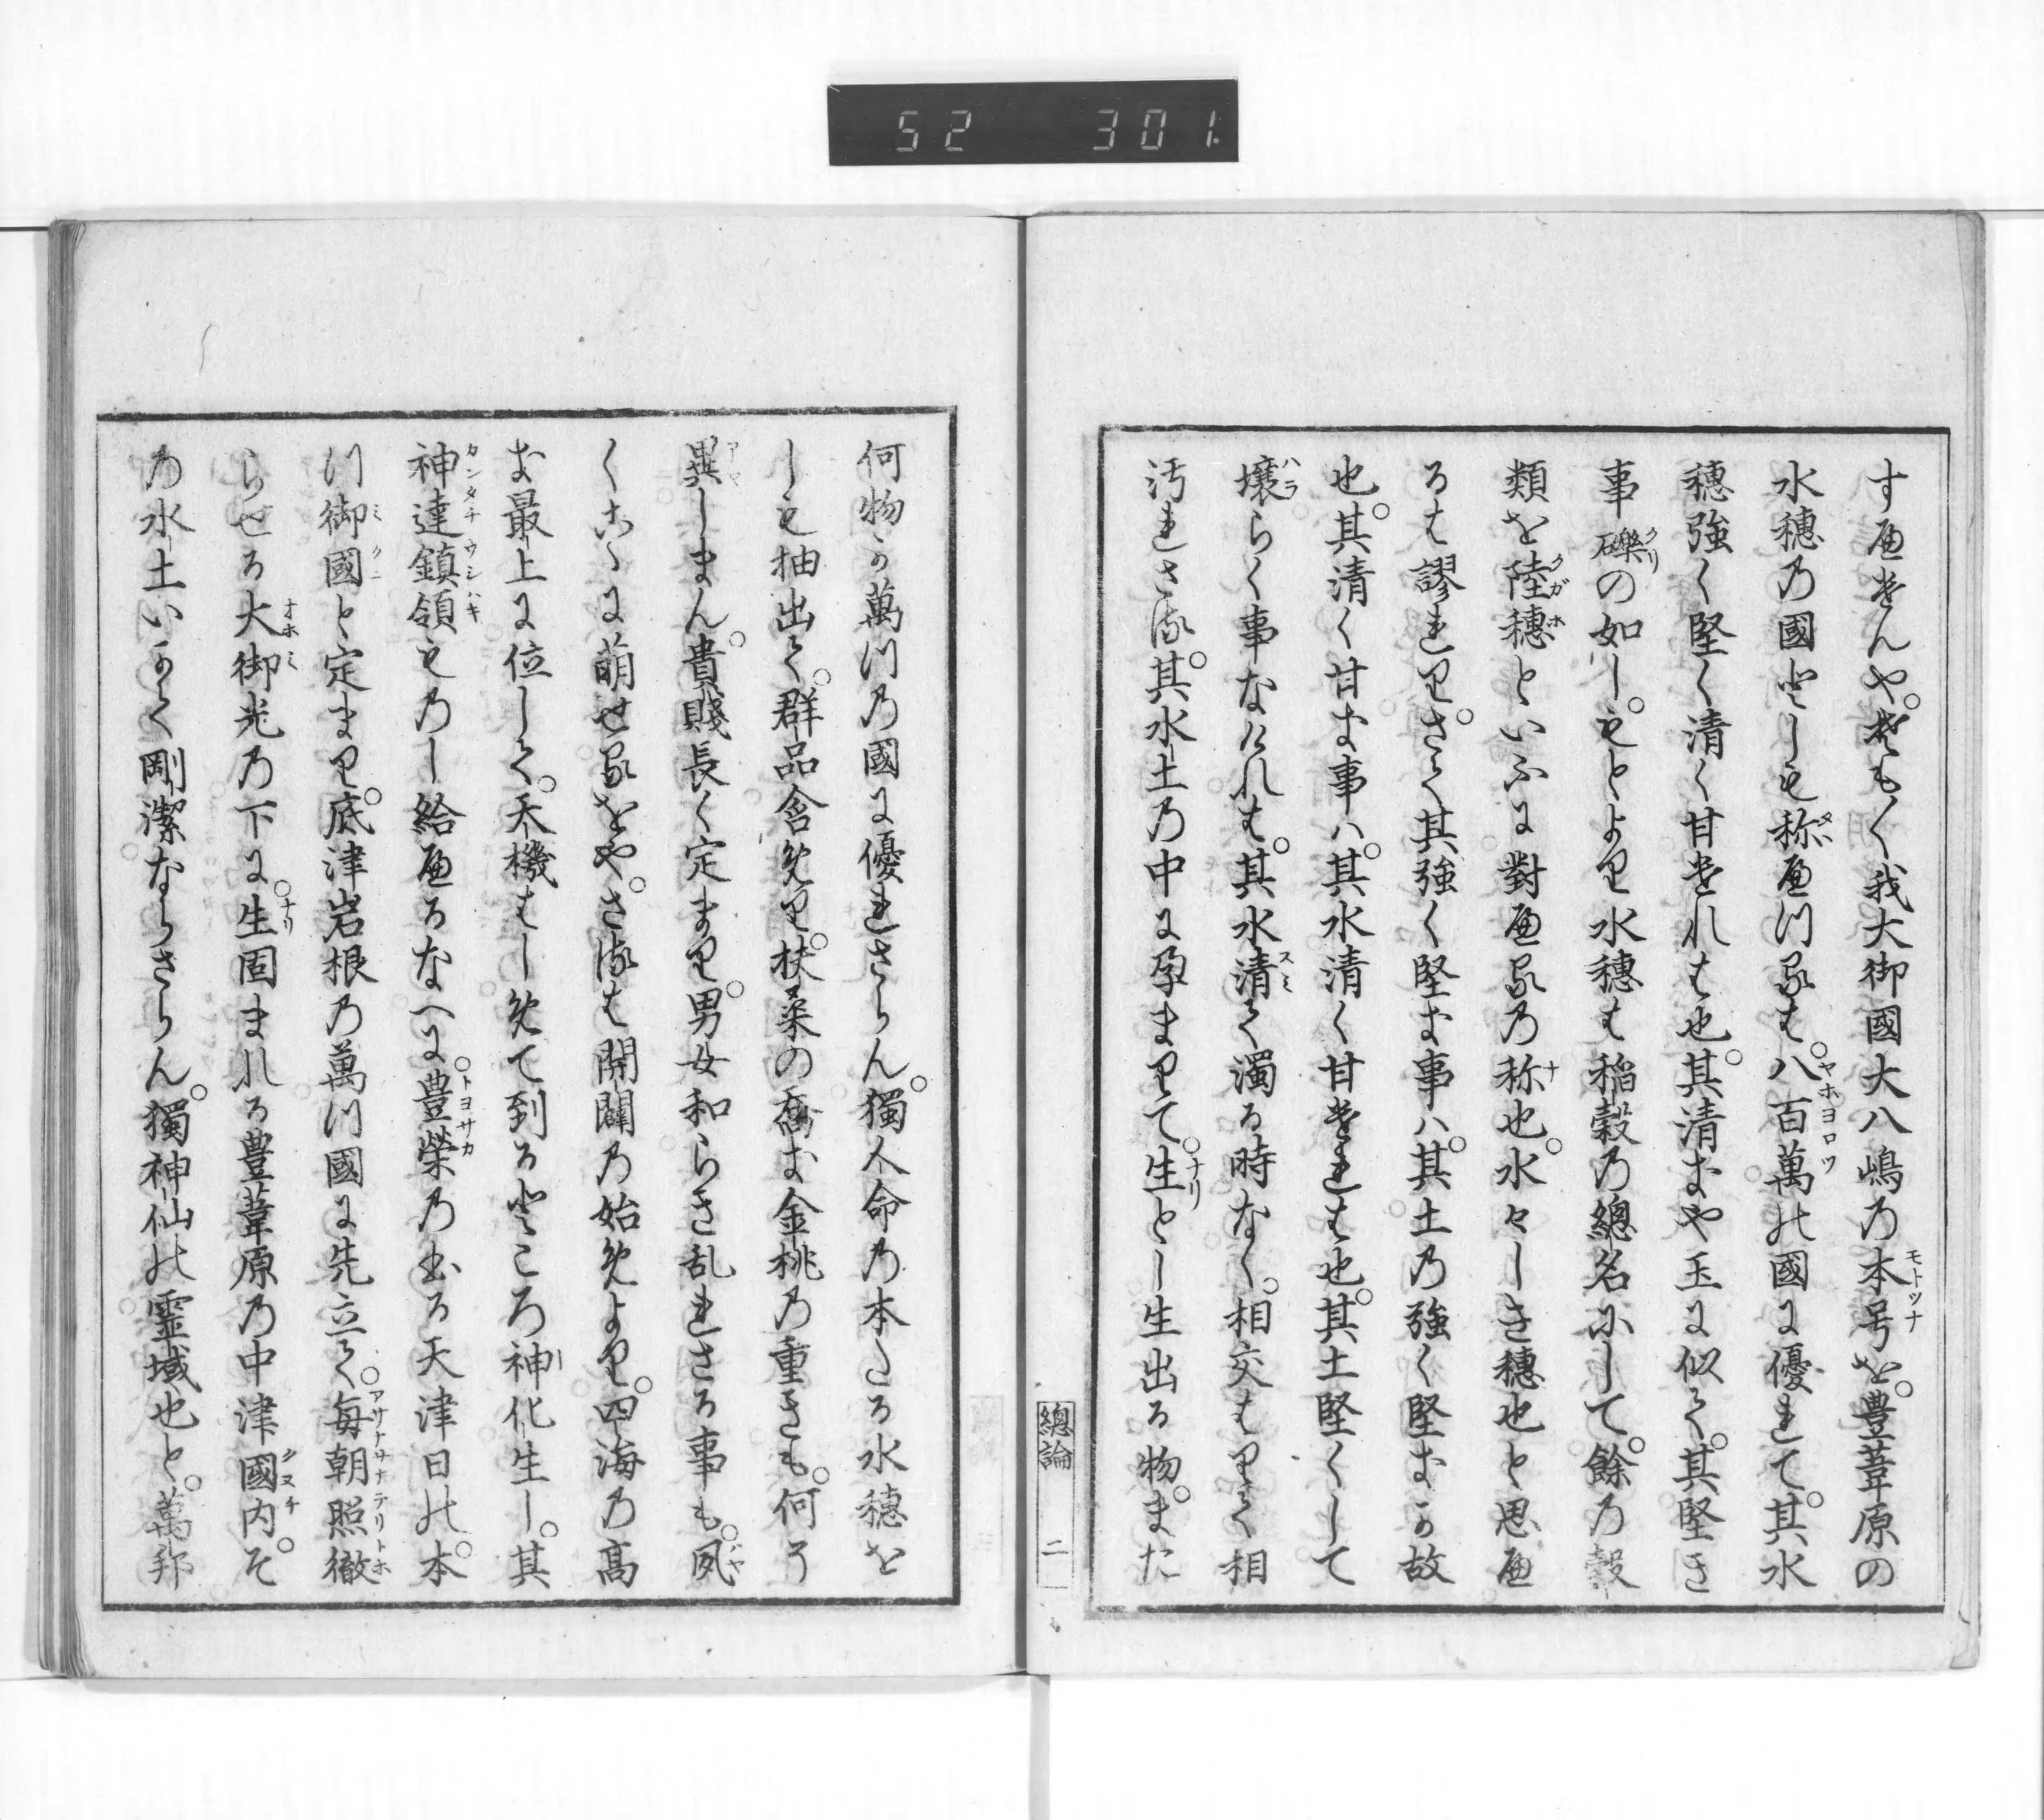 52 301
す
へけんや。そも〱我大御國大八嶋乃本号を。豊葦原の
水穗乃國としも称へつるは。八百萬の國に優れて。其水
穗強く堅く清く甘けれは也。其清きや玉に似て。其堅き
事礫の如し。もとより水穂は稲穀乃總名にして。餘乃穀
類を陸穗といふに對へる乃称也。水々しき穗也と思へ
るは謬れり。さて其強く堅き事ハ。其土乃強く堅きか故
也。其清く甘き事ハ。其水清く甘けれは也。其土堅くして
壌らく事なけれは。其水清て濁る時なく。相交はりて相
汚れさる。其水土乃中に孕まりて。生とし生出る物。また
總論 二
何物か萬つ乃國に優れさらん。獨人命乃本たる水穗を
しも抽出て。群品含めり。扶桒の喬き金桃乃重きも。何そ
異しまん。貴賤長く定まり。男女和らき乱れさる事も。夙
くこゝに萌せるをや。さるは開闢乃始めより。四海乃高
き最上に位して。天機はしめて到るところ神化生し。其
神達鎮領ものし給へるなへに。豊榮乃出る天津日の本。
つ御國と定まり。底津岩根乃萬つ國に先立て。毎朝照徹
らせる大御光乃下に。生固まれる豊葦原乃中津國内。そ
乃水土いかて剛潔ならさらん。獨神仙の霊域也と。萬邦